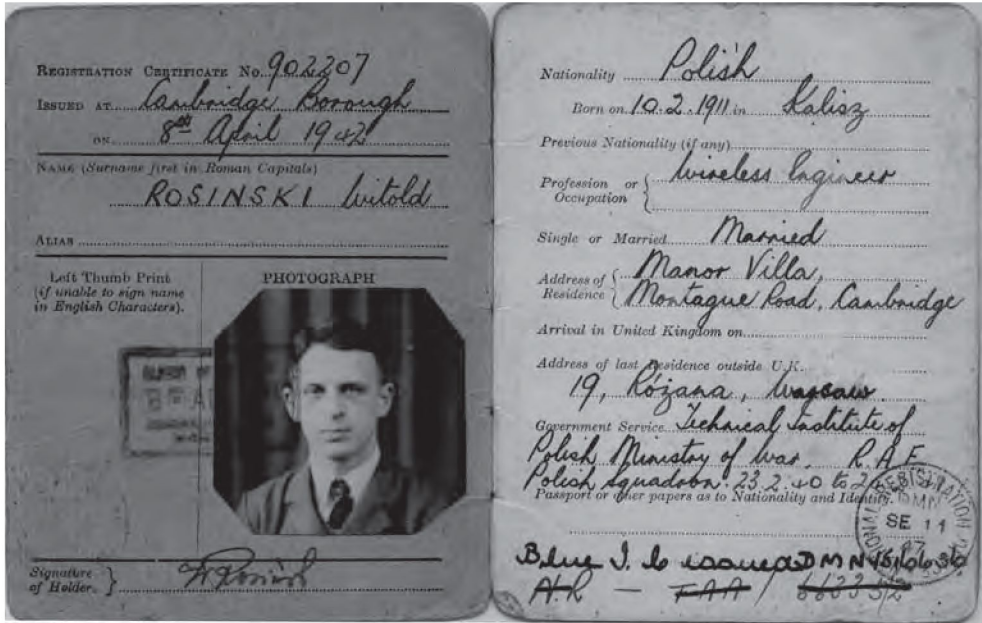 REGISTRATION CERTIFICATE No. 902207
ISSUED AT Cambridge Borough
ON 8th April 1942
NAME (Surname first in Roman Capitals)
ROSINSKI Witold
ALIAS
Left Thumb Print
(if unable to sign name
in English Characters).
PHOTOGRAPH
Signature
of Holder.
Nationality Polish
Born on 10.2.1911 in Kalisz
Previous Nationality (if any)
Profession or Occupation Wireless Engineer
Single or Married Married
Address of Residence Manor Villa,
Montague Road, Cambridge
Arrival in United Kingdom on
Address of last Residence outside U.K.
19, Rózana, Warsaw
Government Service Technical Institute of
Polish Ministry of War. R.A.F.
Polish Squadron. 23.2.40 to
Passport or other papers as to Nationality and Identity
SE 11
Blue I. C issued DMN